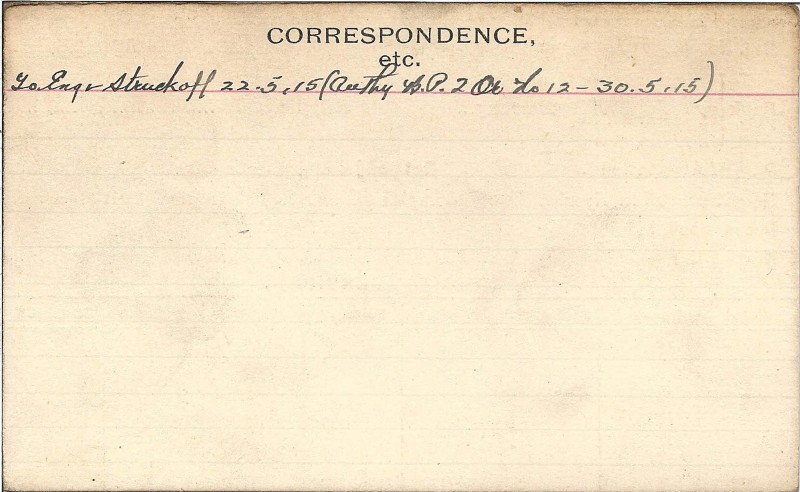 CORRESPONDENCE,
etc.
To Engr Struckoff 22.5.15 (Authy B.P. 2 Or No 12 - 30.5.15)